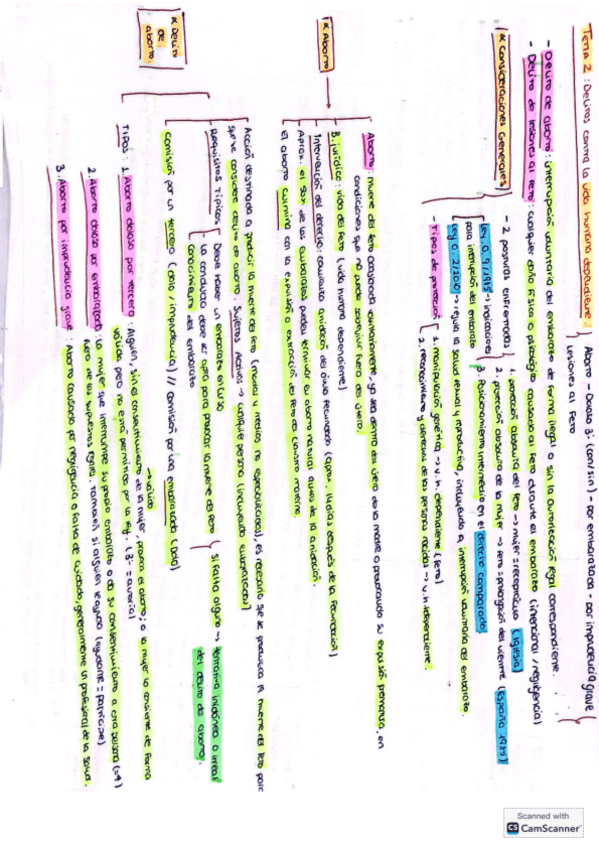 Tema 2: Delitos contra la vida humana dependiente:
Aborto - Doloso 3º (con/sin) - por embarazada - por imprudencia grave
Lesiones al feto
- Delito de aborto: interrupción voluntaria del embarazo de forma ilegal o sin la autorización legal correspondiente.
- Delito de lesiones al feto: cualquier daño físico o psicológico causado al feto durante el embarazo (intencional / negligencia)
Consideraciones Generales
- 2 posturas enfrentadas
1. protección absoluta del feto → mujer = receptáculo (Iglesia)
2. protección absoluta de la mujer → feto = prolongación del vientre (España 1985)
3. Posicionamiento intermedio en el derecho comparado
Ley O. 9/1985 → indicaciones
para interrupción del embarazo
Ley O. 2/2010 → regula la salud sexual y reproductiva, incluyendo la interrupción voluntaria del embarazo.
- Tipos de protección
1. manipulación genética → v.h. dependiente (feto)
2. reconocimiento y derechos de las personas nacidas → v.h. independiente.
Aborto
Aborto: muerte del feto ocasionada voluntariamente, ya sea dentro del útero de la madre o provocando su expulsión prematura, en
condiciones que no puede sobrevivir fuera del útero.
B. jurídico: vida del feto (vida humana dependiente)
Intervención del derecho: comienza anidación del óvulo fecundado (aprox. 14 días después de la fecundación)
Aprox. el 50% de los embarazos pueden terminar en aborto natural antes de la anidación.
El aborto culmina con la expulsión o extracción del feto del claustro materno
Delito de aborto
Acción destinada a producir la muerte del feto (modos y medios no especificados), es necesario que se produzca la muerte del feto para
que se considere delito de aborto. Sujetos Activos → cualquier persona (incluyendo embarazada)
- Requisitos Típicos
Debe haber un embarazo en curso
La conducta debe ser apta para provocar la muerte del feto
conocimiento del embarazo
Si falta alguno → tentativa inidónea o irreal
del delito de aborto.
Comisión por un tercero (dolo / imprudencia) // comisión por una embarazada (dolo)
Tipos: 1. Aborto doloso por tercero: alguien, sin el consentimiento de la mujer, provoca el aborto; o la mujer lo consiente de forma
válida, pero no está permitido por la ley. (3º = autoría)
→ válido
2. Aborto doloso por embarazada: la mujer que interrumpe su propio embarazo o da su consentimiento a otra persona
fuera de los supuestos legales. También si alguien le ayuda (ayudante = partícipe)
3. Aborto por imprudencia grave: Aborto causado por negligencia o falta de cuidado, generalmente un profesional de la salud.
Scanned with
CS CamScanner